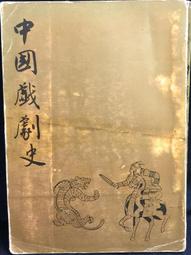 中國戲劇史